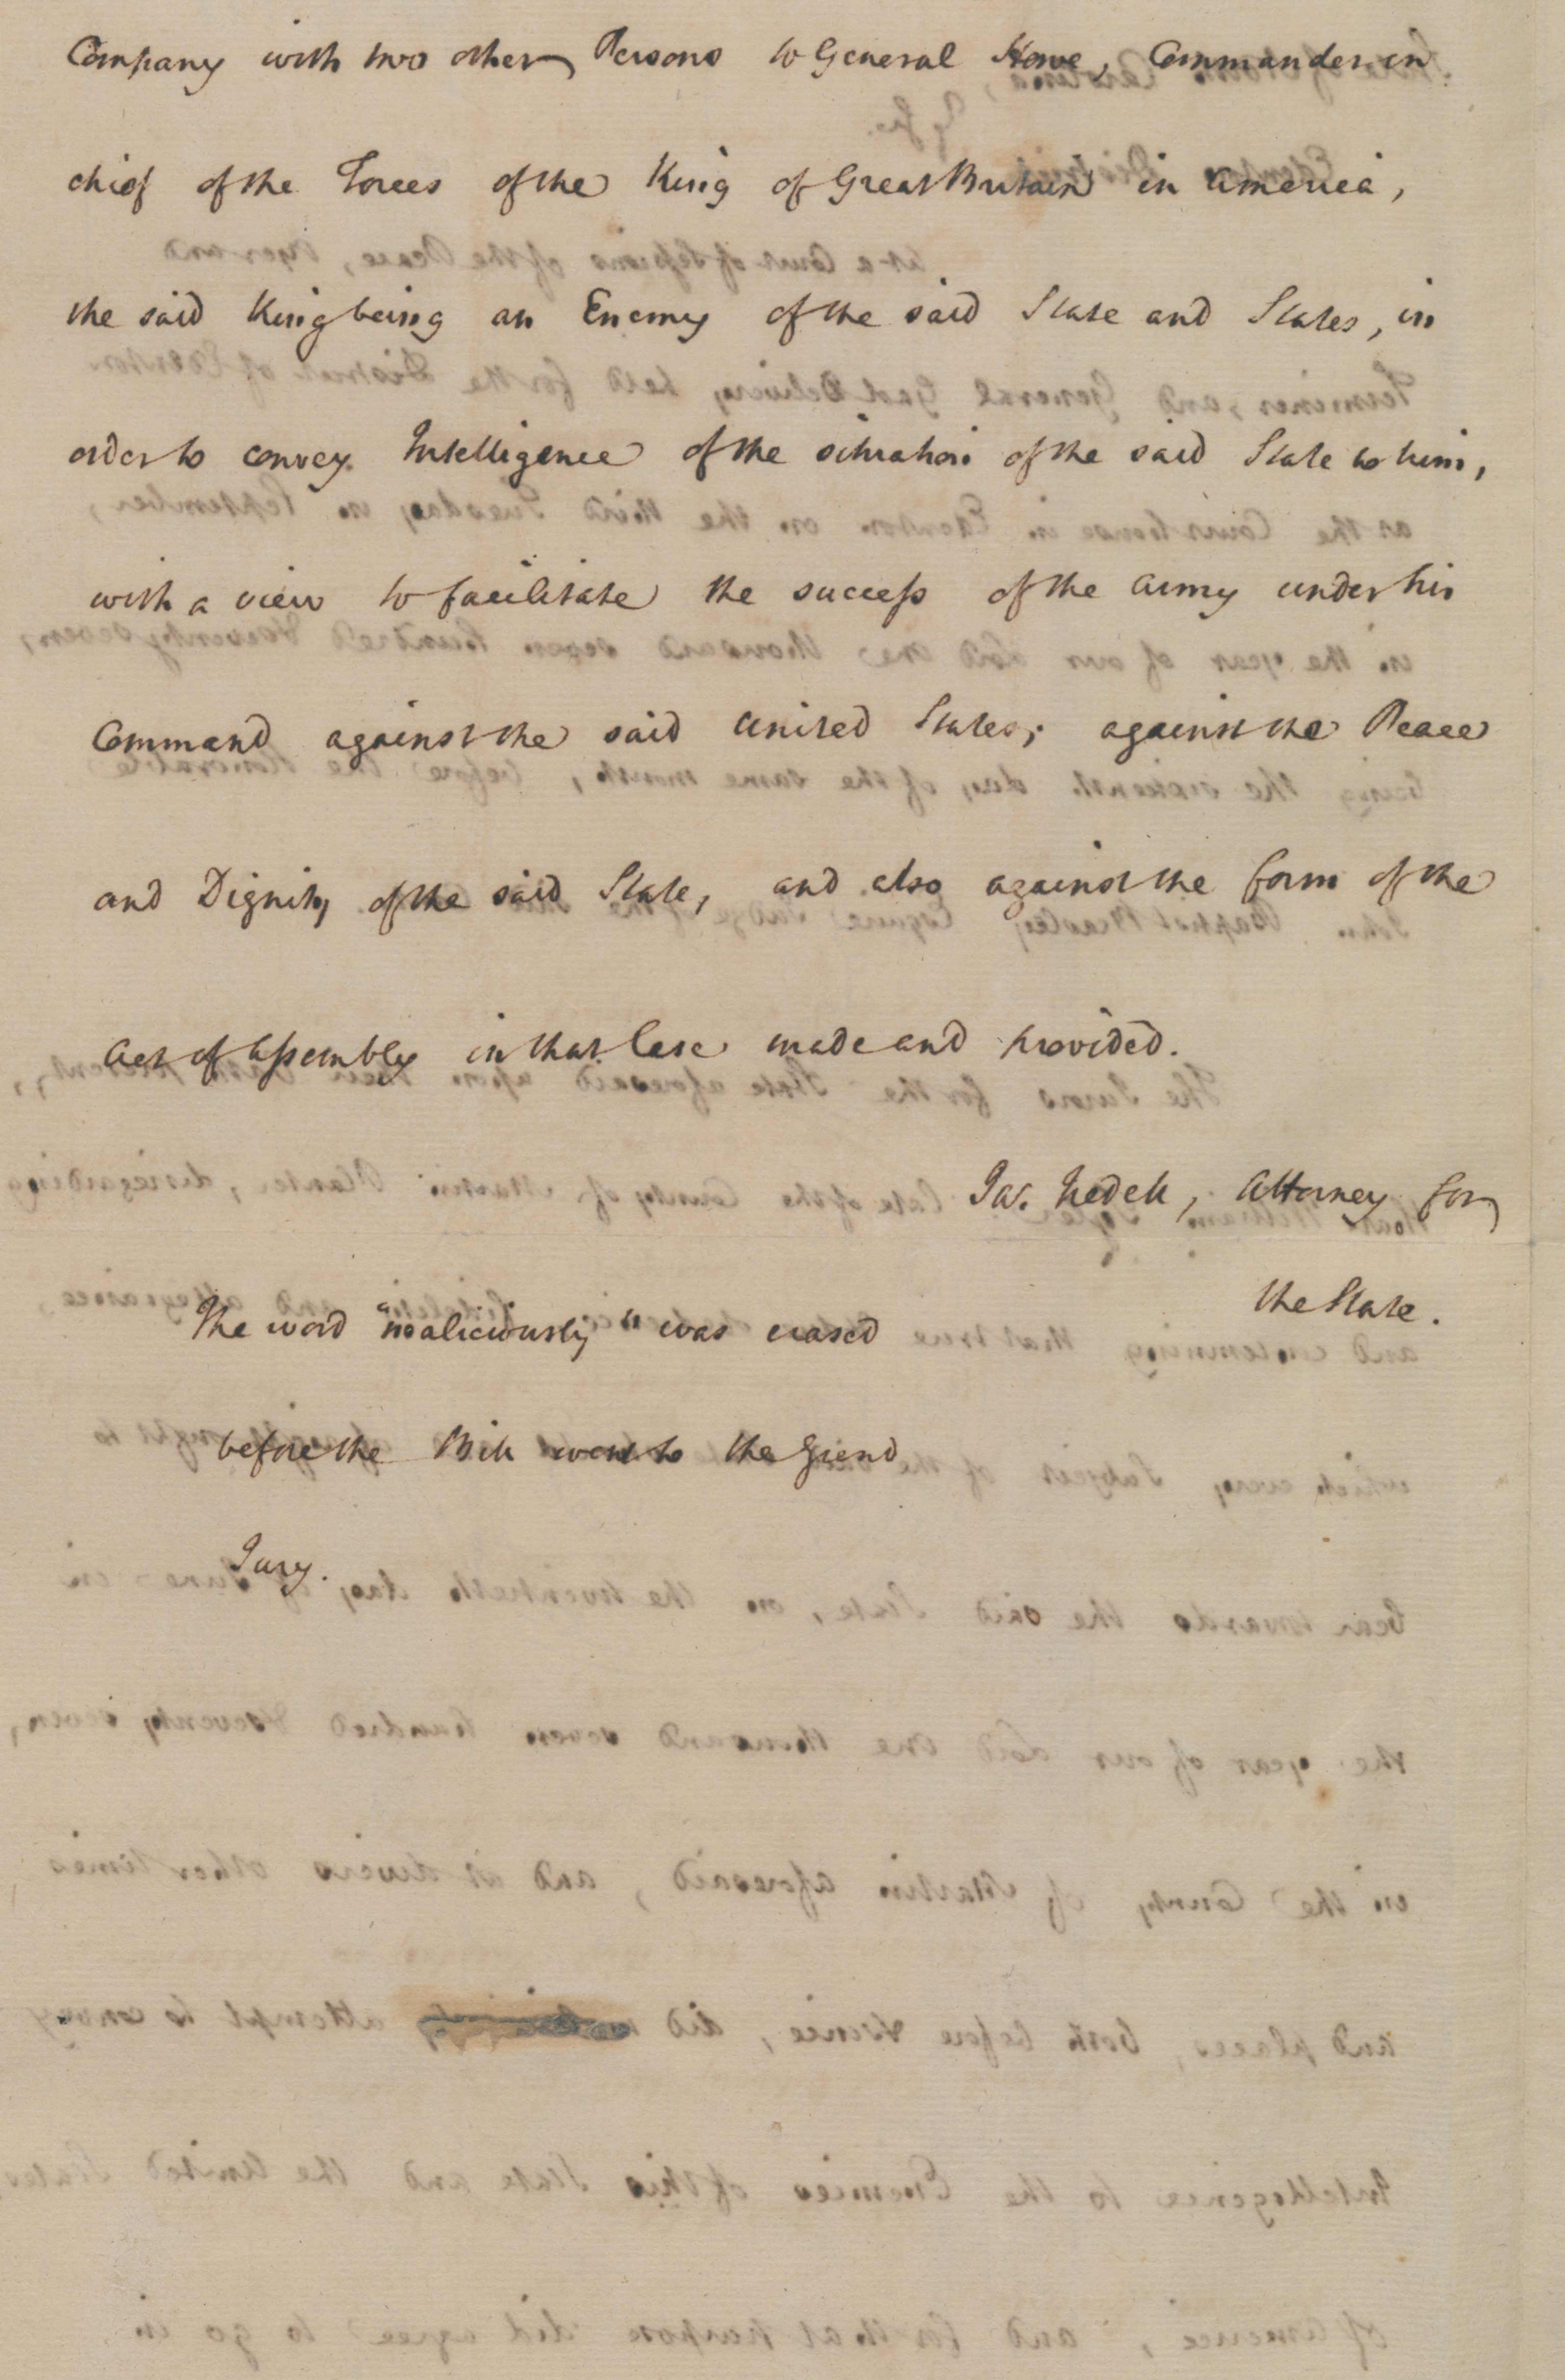 Company with two other Persons to General Howe, Commander in
chief of the Forces of the King of Great Britain in America,
the said King being an Enemy of the said State and States, in
order to convey Intelligence of the situation of the said State to him,
with a view to facilitate the success of the army under his
Command against the said United States; against the Peace
and Dignity of the said State, and also against the form of the
act of Assembly in that Case made and provided.
Jas. Iredell, Attorney for
the State.
The word "maliciously" was erased
before the Bill went to the Grand
Jury.